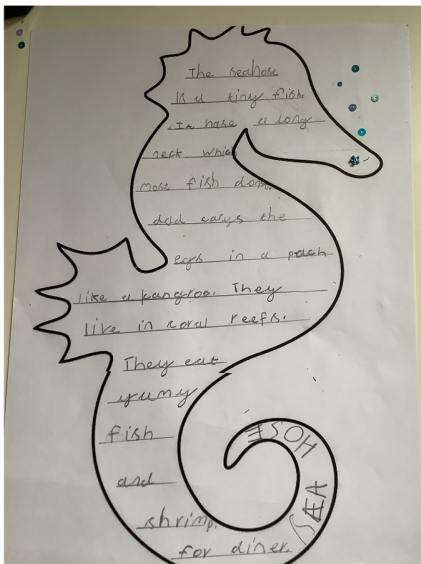 The seahose
is a tiny fish.
It hase a long
neck which
most fish dont.
dad carys the
egs in a poach
like a kangroo. They
live in coral reefs.
They eat
yumy
fish
and
shrimp.
for diner.
SEA HOSE